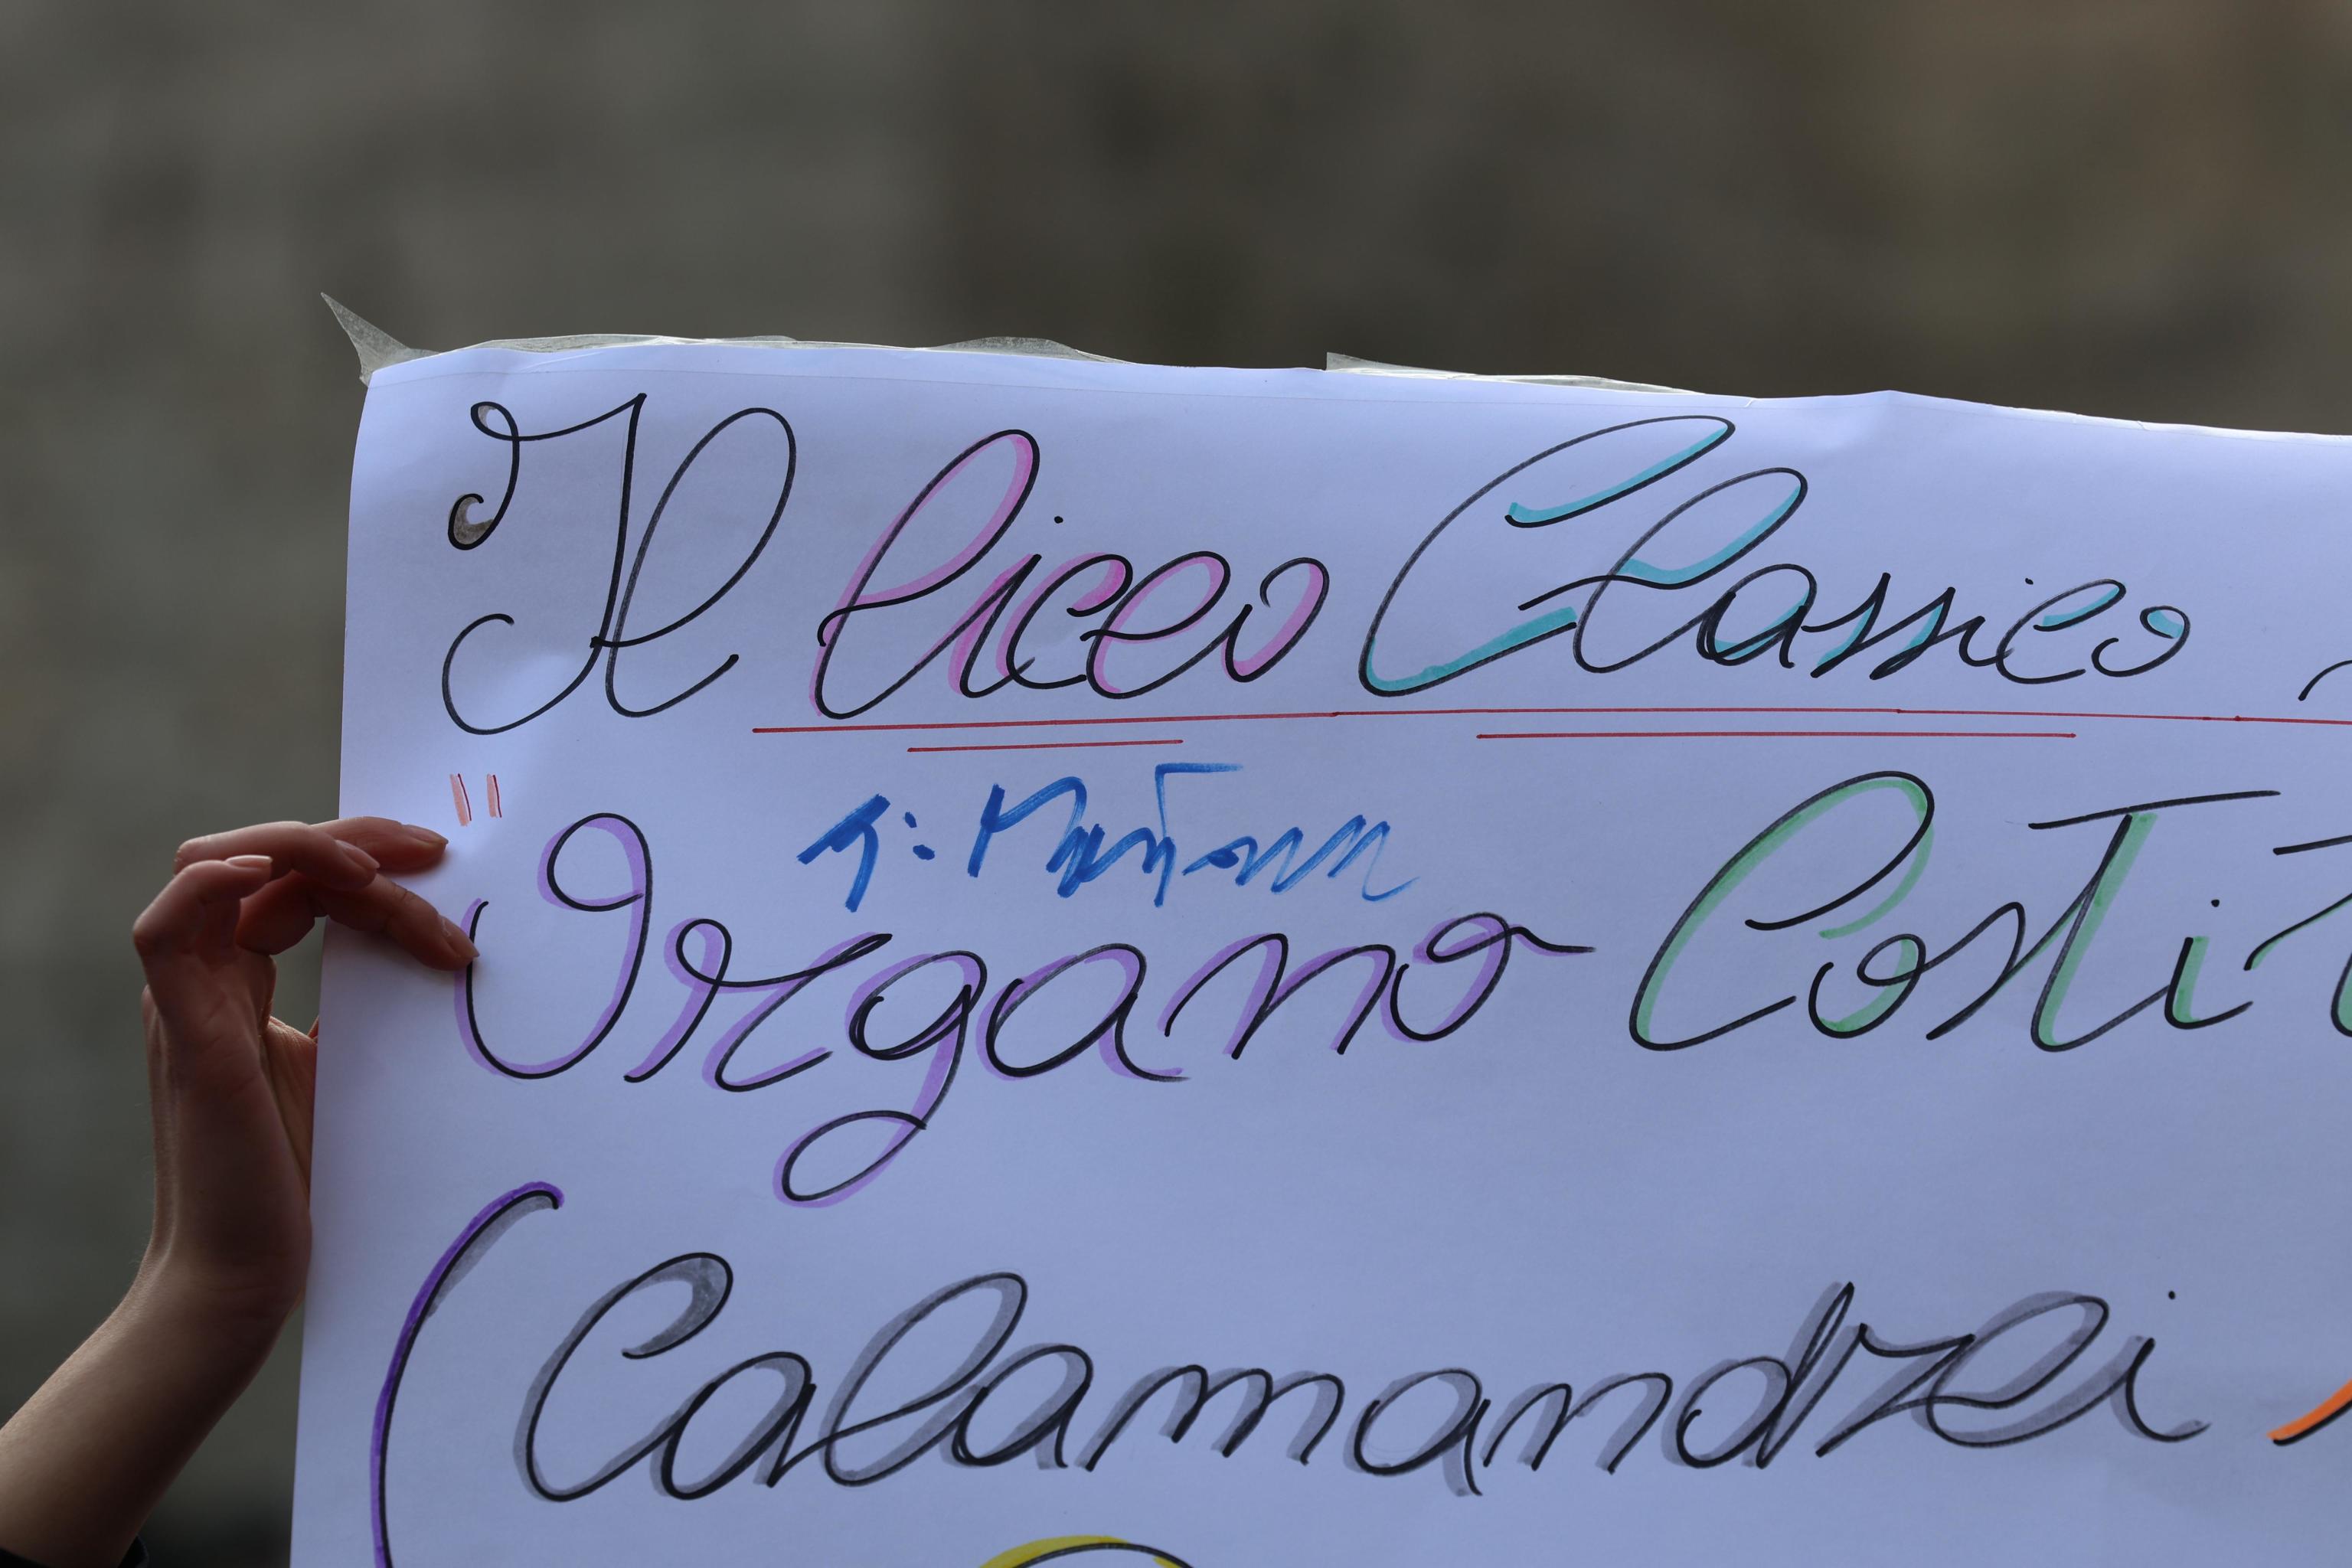 Il liceo Classico
" Organo Costit
(Calamandrei